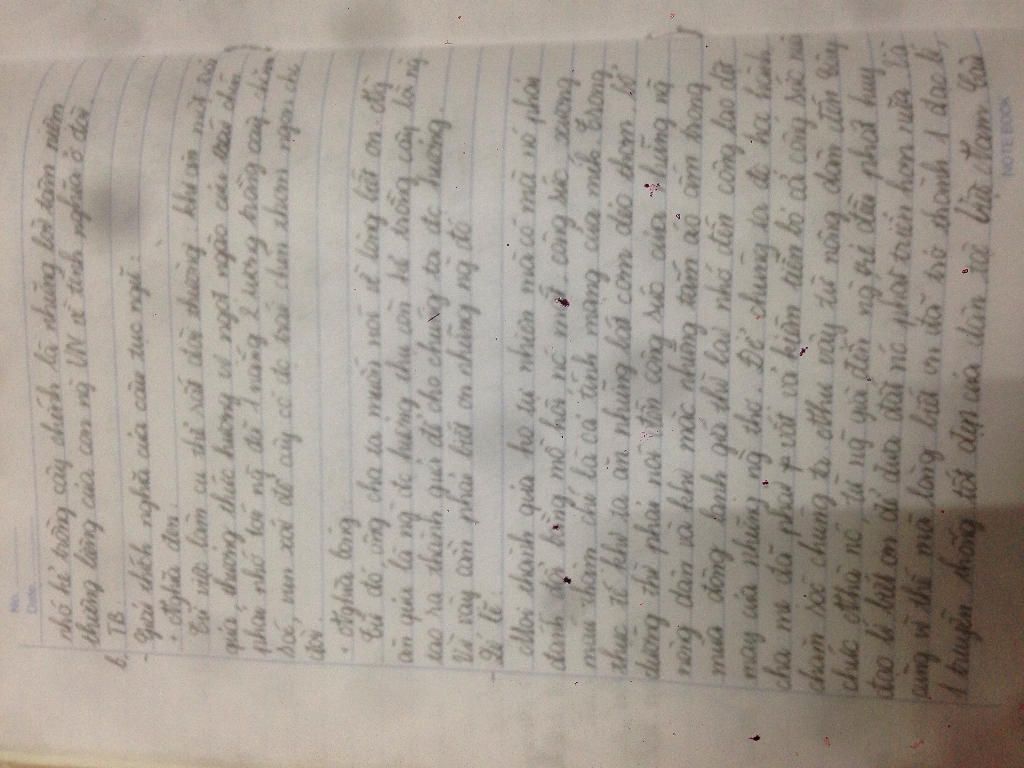 No.
Date.
nhớ kẻ trồng cây chính là những lời tâm niệm
thiêng liêng của con ng VN về tình nghĩa ở đời.
b, TB
- Giải thích nghĩa của câu tục ngữ:
+ Nghĩa đen
Từ việc làm cụ thể rất đời thường khi ăn một trái
quả, thưởng thức hương vị ngọt ngào của trái chín
phải nhớ tới ng đã 1 nắng 2 sương trồng cây, chăm
sóc, vun xới để cây có đc trái chín thơm ngon cho
đời.
+ Nghĩa bóng
Từ đó ông cha ta muốn nói về lòng biết ơn đây
ăn quả là ng đc hưởng thụ còn kẻ trồng cây là ng
tạo ra thành quả đó cho chúng ta đc hưởng.
Vì vậy cần phải biết ơn những ng đó
- Lí lẽ
Mọi thành quả ko tự nhiên mà có mà nó phải
đánh đổi bằng mồ hôi nước mắt, công sức xương
máu thậm chí là cả tính mạng của mình. Trong
thực tế khi ta ăn những bát cơm dẻo thơm, bổ
dưỡng thì phải nhớ đến công sức của những ng
nông dân và khi mặc những tấm áo ấm trong
mùa đông lạnh giá thì lại nhớ đến công lao dệt
may của những ng thợ. Để chúng ta đc hạ hành
cha mẹ đã phải vất vả kiếm tiền bỏ cả công sức nuôi
chăm sóc chúng ta. Như vậy từ nông dân đến công
chức Nhà nc, từ ng già đến ng trẻ đều phát huy
đạo lí biết ơn để đưa đất nc phát triển hơn nữa. Và
cũng vì thế mà lòng biết ơn đã trở thành 1 đạo lí,
1 truyền thống tốt đẹp của dân tộc Việt Nam.
NOTE BOOK